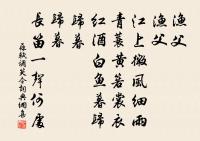 漁父
漁父
江上微風細雨
青蓑黃箬裳衣
紅酒白魚暮歸
歸暮
歸暮
長笛一聲何處
蘇軾調笑令詞典網